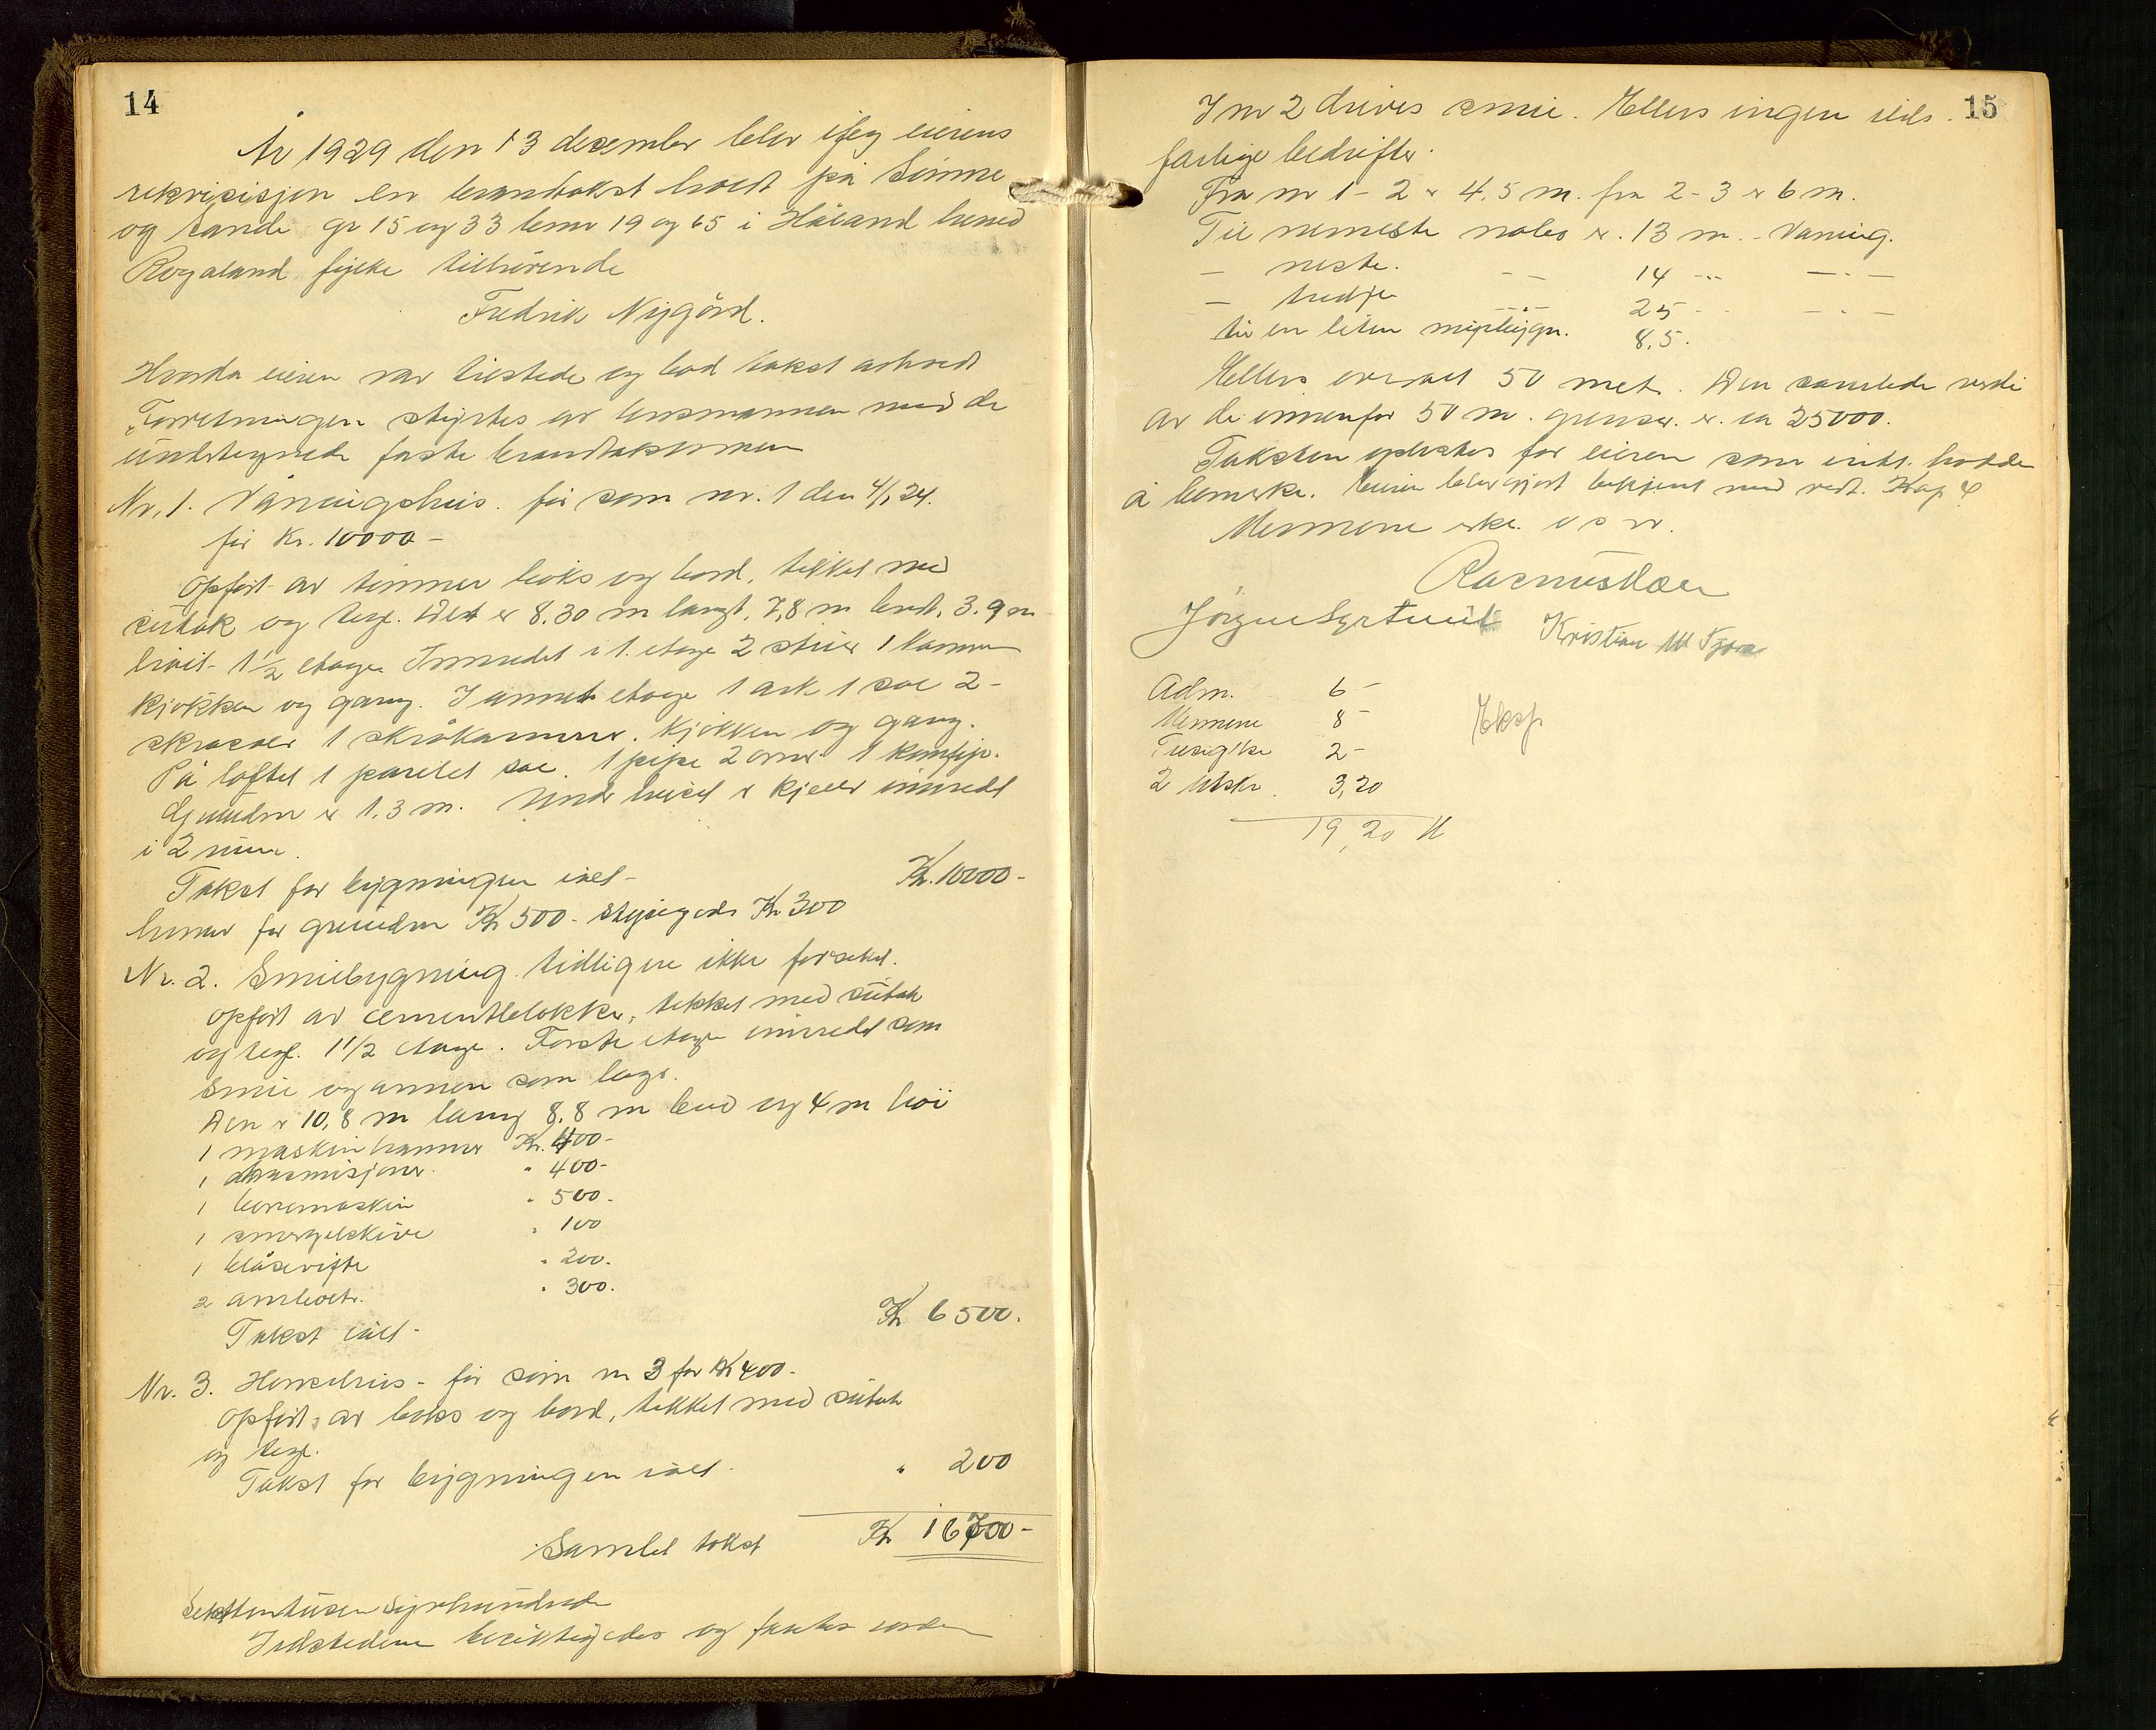 14
År 1929 den 13 desember blev ifølg eierens
rekvisisjon en branntakst holdt på Sømme
og Sande gr 15 og 33 bnr 19 og 65 i Håland herred
Rogaland fylke tilhørende
Fredrik Nygård.
Hvorda eieren var tilstede og bad takst avholdt
Forretningen styrtes av lensmannen med de
undertegnede faste branntaksmenn
Nr. 1. Våningshus. før som nr. 1 den 4/1 24.
for Kr. 10000 -
Opført av tømmer boks og bord, tekket med
sutak og tegl. Det er 8.30 m langt, 7,8 m bredt, 3.9 m
høit - 1½ etage Innredet i 1. etage 2 stuer 1 kammer
kjøkken og gang. I annet etage 1 ark 1 sal 2 -
skråsaler 1 skråkammer. kjøkken og gang.
På loftet 1 panelet sal. 1 pipe 2 ovner 1 komfyr.
Grunden er 1.3 m. Under huset er kjeller innredet
i 2 rum.
Takst for bygningen ialt - Kr. 10000 -
herav for grunden Kr 500 - Kr 300
Nr. 2. Smiebygning tidligere ikke forsekret.
Opført av cementblokker, tekket med sutak
og tegl. 1 1/2 etage. Første etage innredet som
smie og annen som lager.
Den er 10,8 m lang 8,8 m bred og 4 m høi
1 maskinhammer Kr. 400 -
1 transmisjoner " 400 -
1 borremaskin " 500 -
1 smergelskive " 100
1 blåsevifte " 200.
2 ambolter. " 300.
Takst ialt - Kr 6500.
Nr. 3. Hønsehus - før som nr 3 for Kr 400 -
Opført av boks og bord, tekket med sutak
og tegl.
Takst for bygningen ialt - " 200
Samlet takst Kr 16700 -
Sekstentusen syvhundrede
Ildstedene besiktigedes og fantes iorden
15
I nr 2 drives smie. Ellers ingen ilds-
farlige bedrifter.
Fra nr 1 - 2 er 4,5 m. fra 2 - 3 er 6 m.
Til nermeste nabo er. 13 m. - Våning.
- neste. - - 14 --- - . -
- tredje - . - 25 - - . -
til en liten bygn. 8,5.
Ellers overalt 50 met. Den samlede verdi
av de innenfor 50 m. grensen. er. ca 25000.
Taksten oplestes for eieren som intet hadde
å bemerke. Eieren blev gjort bekjent med vedt. Kap 4
Mennene erkl. o s v.
Rasmus Hæ
Jørgen Kristian M Tjora
Adm. 6 -
Mennene 8 -
2 -
2 Utskr. 3,20
19,20
Eksp